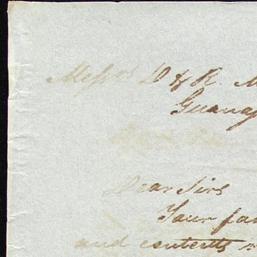 Messrs D & R. M
Guana
Dear Sirs
Your fa
and contents